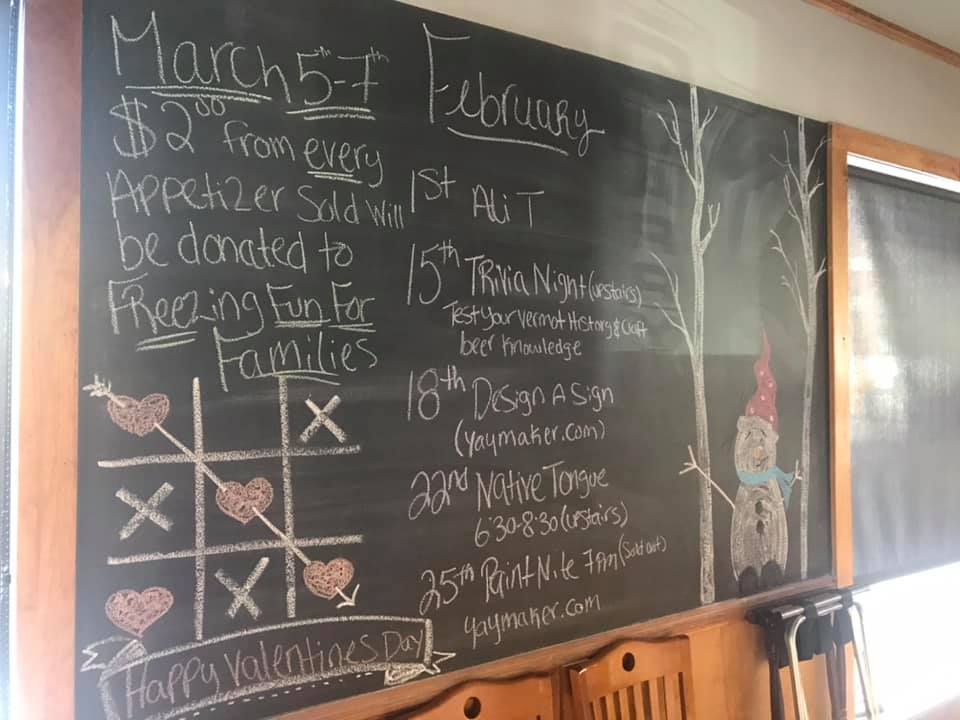 March 5th-7th
$2.00 from every
Appetizer Sold Will
be donated to
Freezing Fun For
Families
X
X
X
Happy Valentines Day
February
1st Ali T
15th Trivia Night (upstairs)
Test your Vermot History & Craft
beer knowledge
18th Design A Sign
(yaymaker.com)
22nd Native Tongue
6:30-8:30 (upstairs)
25th Paint Nite 7pm (Sold out)
yaymaker.com